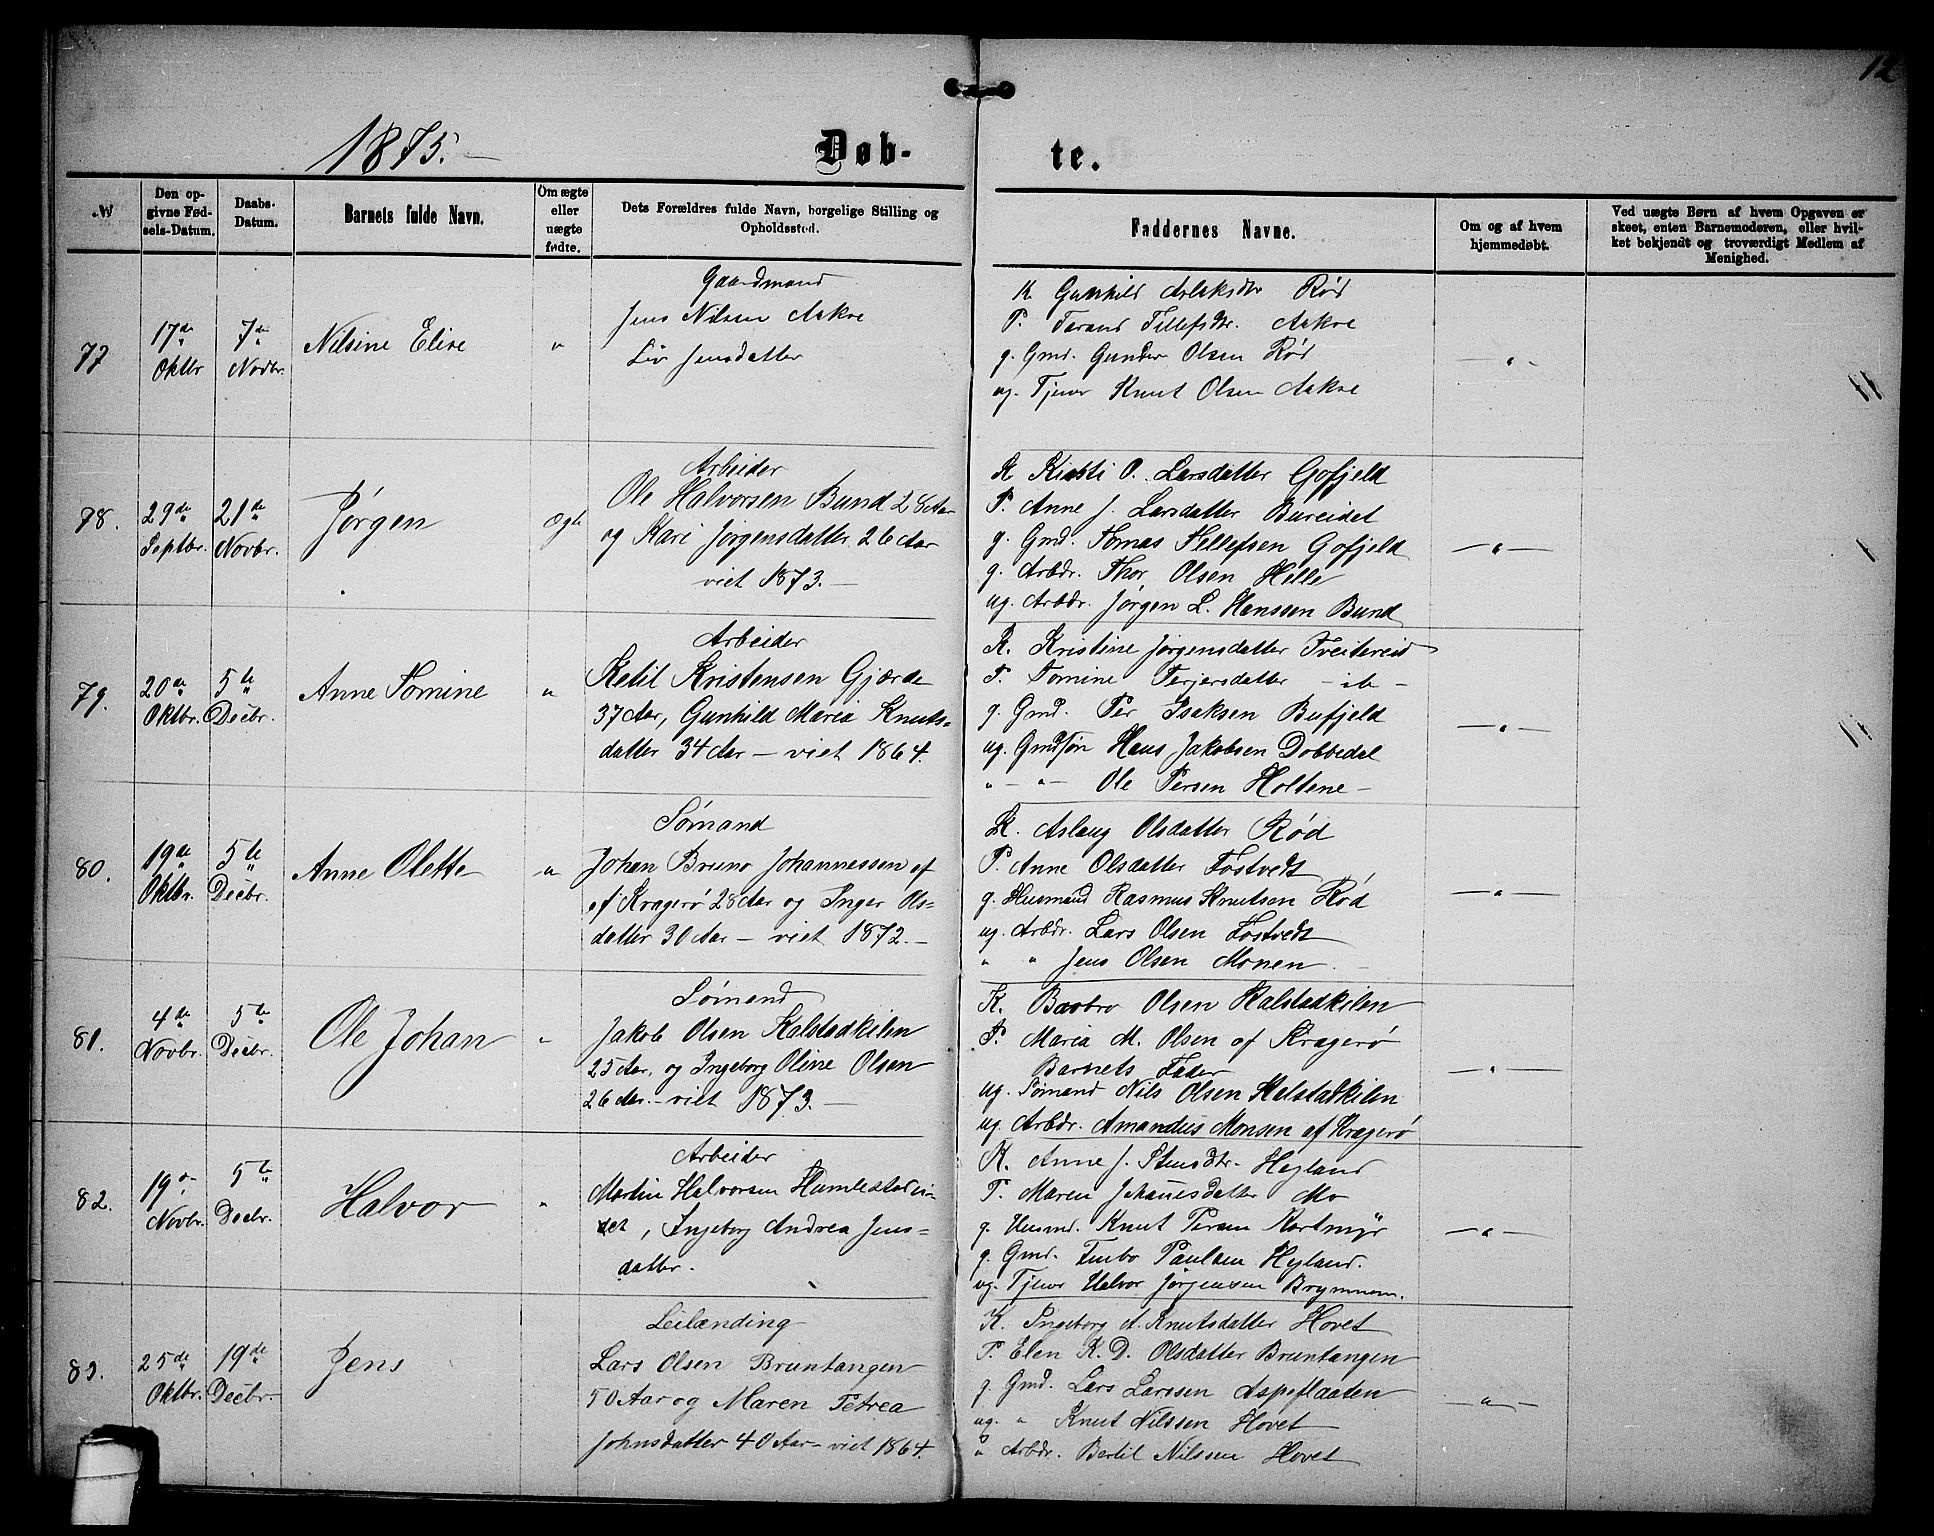 12
1875. —
Døb-
te.
№
Den op-
givne Fød-
sels-Datum.
Daabs-
Datum.
Barnets fulde Navn.
Om ægte
eller
uægte
fødte.
Dets Forældres fulde Navn, borgelige Stilling og
Opholdssted.
Faddernes Navne.
Om og af hvem
hjemmedøbt.
Ved uægte Børn af hvem Opgaven er
skeet, enten Barnemoderen, eller hvil-
ket bekjendt og troværdigt Medlem af
Menighed.
77
17de Oktbr
7de Novbr.
Nilsine Elise
"
Gaardmand
Jens Nilsen Aakre
Liv Jensdatter
K. Gunhild Aslaksdtr Rød
P. Taran Tellefsdtr. Aakre
g. Gmd. Gunder Olsen Rød
ug. Tjener Knut Olsen Aakre
— " -
78.
29de Septbr.
21de Novbr.
Jørgen
Ægte
Arbeider
Ole Halvorsen Bund 28 Aar
og Kari Jørgensdatter 26 Aar
viet 1873. —
K. Kirsti O. Larsdatter Gofjeld
P. Anne J. Larsdatter Bureidet
g. Gmd. Tomas Tellefsen Gofjeld
g. Arbdr. Thor Olsen Helle
ug. Arbdr. Jørgen L. Hanssen Bund
— " —
79.
20de Oktbr.
5te Decbr.
Anne Tomine
"
Arbeider
Ketil Kristensen Gjærde
37 Aar, Gunhild Maria Knuts-
datter 34 Aar — viet 1864.
K. Kristine Jørgensdatter Tveitereid
P. Tomine Terjersdatter — ib —
g. Gmd. Per Isaksen Bufjeld
ug. Gmdsøn Hans Jakobsen Dobbedal
" — " — Ole Persen Holtene —
— " —
80.
19de Oktbr.
5te Decbr.
Anne Olette
"
Sømand
Johan Bruno Johannessen af
af Kragerø 28 Aar og Inger Ols-
datter 30 Aar — viet 1872. —
K. Aslaug Olsdatter Rød
P. Anne Olsdatter Fostvedt
g. Husmand Rasmus Knutsen Rød
ug. Arbdr. Lars Olsen Fostvedt
" " Jens Olsen Monen.
— " —
81.
4de Novbr.
5te Decbr.
Ole Johan
"
Sømand
Jakob Olsen Kalstadkilen
25 Aar, og Ingeborg Oline Olsen
26 Aar. — viet 1873. —
K. Barbro Olsen Kalstadkilen
P. Maria M. Olsen af Kragerø
Barnets Fader
ug. Sømand Nils Olsen Kalstadkilen
ug. Arbdr. Amandus Monsen af Kragerø
— " —
82.
19de Novbr.
5te Decbr.
Halvor
"
Arbeider
Martin Halvorsen
Ingeborg Andrea Jens-
datter.
K. Anne J. Stensdtr. Høgland
P. Maren Johannesdatter Mo
g. Husmd. Knut Persen
g. Gmd. Paulsen
ug. Tjener Halvor Jørgensen
— " —
83.
25de Oktbr.
19de Decbr.
Jens
Leilænding
Lars Olsen Bruntangen
50 Aar og Maren Petrea
Johnsdatter 40 Aar — viet 1864.
K. Ingeborg A. Knutsdatter Hovet
P. Elen K. D. Olsdatter Bruntangen
g. Gmd. Lars Larssen Aspeflaaten
ug. " Knut Nilssen Hovet
" Arbdr. Bertil Nilssen Hovet
— " —